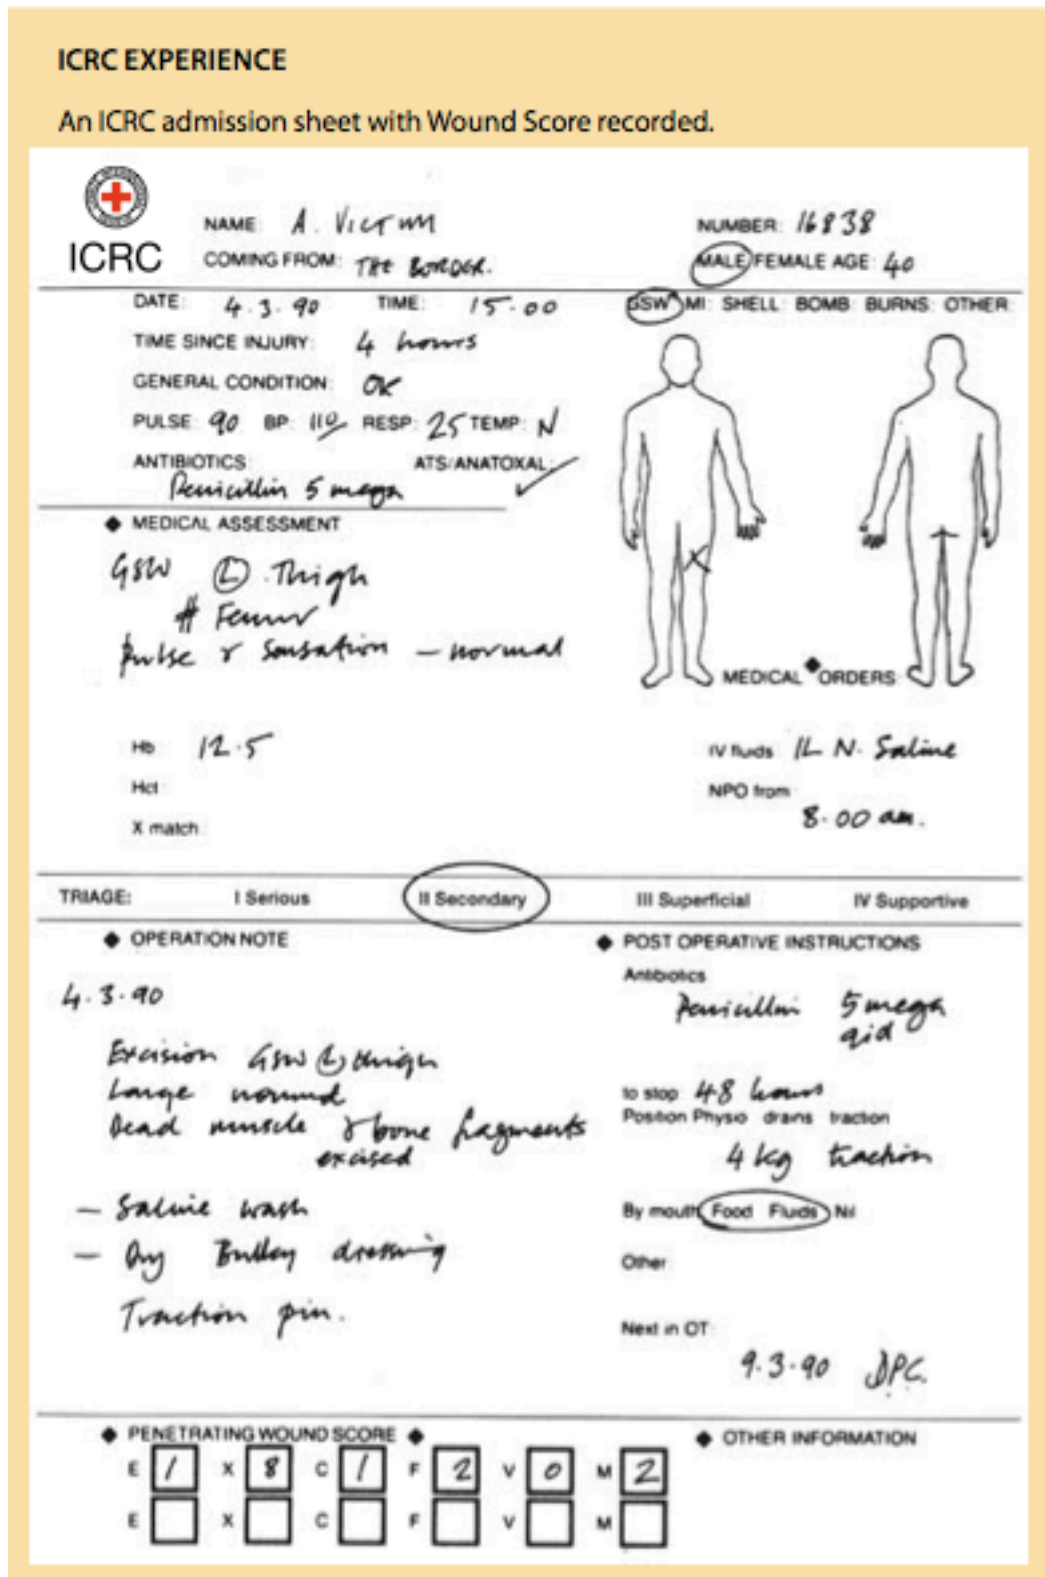 ICRC EXPERIENCE
An ICRC admission sheet with Wound Score recorded.
ICRC
NAME: A. VICTIM
NUMBER: 16838
COMING FROM: THE BORDER.
MALE FEMALE AGE: 40
DATE: 4.3.90 TIME: 15.00
GSW MI: SHELL: BOMB: BURNS: OTHER:
TIME SINCE INJURY: 4 hours
GENERAL CONDITION: OK
PULSE: 90 BP: 110/ RESP: 25 TEMP: N
ANTIBIOTICS: ATS/ANATOXAL: ✓
Penicillin 5 mega
◆ MEDICAL ASSESSMENT
GSW Ⓛ Thigh
# Femur
Pulse & Sensation – normal
MEDICAL ◆ ORDERS
Hb 12.5
IV fluids 1L N. Saline
Hct
NPO from
8.00 am.
X match
TRIAGE: I Serious II Secondary III Superficial IV Supportive
◆ OPERATION NOTE
4.3.90
Excision GSW Ⓛ thigh
Large wound
Dead muscle & bone fragments
excised
– Saline wash
– Dry Bulky dressing
Traction pin.
◆ POST OPERATIVE INSTRUCTIONS
Antibiotics
Penicillin 5 mega
qid
to stop 48 hours
Position Physio drains traction
4 kg traction
By mouth Food Fluids Nil
Other
Next in OT:
9.3.90 DPC.
◆ PENETRATING WOUND SCORE ◆
◆ OTHER INFORMATION
E 1 X 8 C 1 F 2 V 0 M 2
E X C F V M